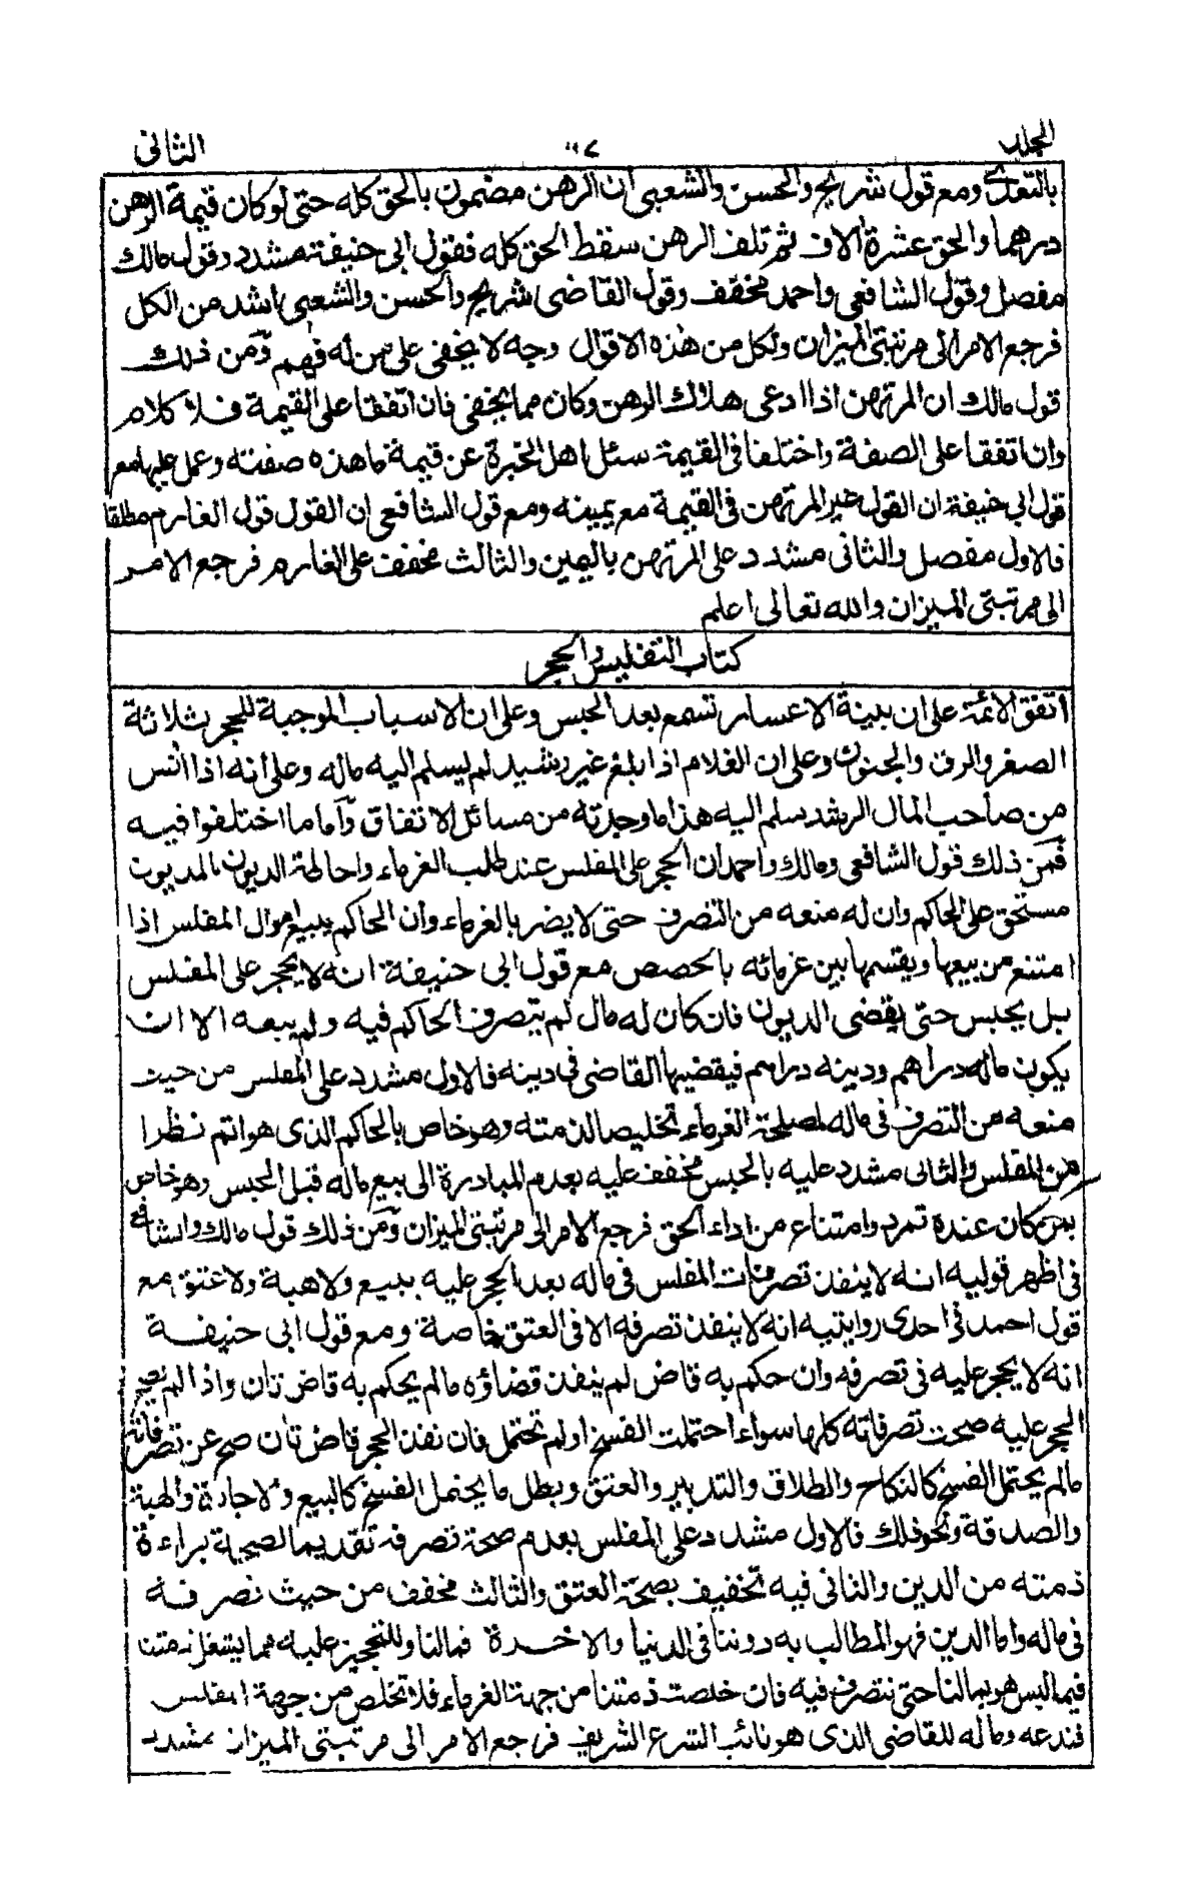 المجلد
الثانى
بالتعدى ومع قول شريح والحسن والشعبى ان الرهن مضمون بالحق كله حتى لو كان قيمة الرهن
درهما والحق عشرة آلاف ثم تلف الرهن سقط الحق كله فقول ابى حنيفة مشدد وقول مالك
مفصل وقول الشافعى واحمد مخفف وقول القاضى شريح والحسن والشعبى اشد من الكل
فرجع الامر الى مرتبتى الميزان ولكل من هذه الاقوال وجه لا يخفى على من له فهم ومن ذلك
قول مالك ان المرتهن اذا ادعى هلاك الرهن وكان مما يخفى فان اتفقا على القيمة فلا كلام
وان اتفقا على الصفة واختلفا فى القيمة سئل اهل الخبرة عن قيمة ما هذه صفته وعمل عليها مع
قول ابى حنيفة ان القول غير المرتهن فى القيمة مع يمينه ومع قول الشافعى ان القول قول الغارم مطلقا
فالاول مفصل والثانى مشدد على المرتهن باليمين والثالث مخفف على الغارم فرجع الامر
الى مرتبتى الميزان والله تعالى اعلم
كتاب التفليس والحجر
اتفق الائمة على ان بينة الاعسار تسمع بعد الحبس وعلى ان الاسباب الموجبة للحجر ثلاثة
الصغر والرق والجنون وعلى ان الغلام اذا بلغ غير رشيد لم يسلم اليه ماله وعلى انه اذا انس
من صاحب المال الرشد سلم اليه هذا ما وجدته من مسائل الاتفاق وأما ما اختلفوا فيه
فمن ذلك قول الشافعى ومالك واحمد ان الحجر على المفلس عند طلب الغرماء واحاطة الديون بالمديون
مستحق على الحاكم وان له منعه من التصرف حتى لا يضر بالغرماء وان الحاكم يبيع اموال المفلس اذا
امتنع من بيعها ويقسمها بين غرمائه بالحصص مع قول ابى حنيفة انه لا يحجر على المفلس
بل يحبس حتى يقضى الديون فان كان له مال لم يتصرف الحاكم فيه ولم يبعه الا ان
يكون ماله دراهم ودينه دراهم فيقضيها القاضى فى دينه فالاول مشدد على المفلس من حيث
منعه من التصرف فى ماله لمصلحة الغرماء تخليصا لذمته وهو خاص بالحاكم الذى هو اتم نظرا
من المفلس والثانى مشدد عليه بالحبس مخفف عليه بعدم المبادرة الى بيع ماله قبل الحبس وهو خاص
بمن كان عنده تمرد وامتناع من اداء الحق فرجع الامر الى مرتبتى الميزان ومن ذلك قول مالك والشافعى
فى اظهر قوليه انه لا ينفذ تصرفات المفلس فى ماله بعد الحجر عليه ببيع ولا هبة ولا عتق مع
قول احمد فى احدى روايتيه انه لا ينفذ تصرفه الا فى العتق خاصة ومع قول ابى حنيفة
انه لا يحجر عليه فى تصرفه وان حكم به قاض لم ينفذ قضاؤه ما لم يحكم به قاض ثان واذا لم يصح
الحجر عليه صحت تصرفاته كلها سواء احتملت الفسخ او لم تحتمل فان نفذ الحجر قاض ثان صح من تصرفاته
ما لم يحتمل الفسخ كالنكاح والطلاق والتدبير والعتق وبطل ما يحتمل الفسخ كالبيع والاجارة والهبة
والصدقة ونحو ذلك فالاول مشدد على المفلس بعدم صحة تصرفه تقديما لصحبة براءة
ذمته من الدين والثانى فيه تخفيف بصحة العتق والثالث مخفف من حيث تصرفه
فى ماله واما الدين فهو المطالب به دوننا فى الدنيا والآخرة فمالنا وللتحجيز عليه مما يشغل ذمتنا
فيما ليس هو بمالنا حتى نتصرف فيه فان خلصت ذمتنا من جهة الغرماء فلا تخلص من جهة المفلس
فندعه وماله للقاضى الذى هو نائب الشرع الشريف فرجع الامر الى مرتبتى الميزان بتشديد